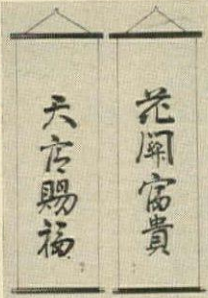 花開富貴
天官賜福